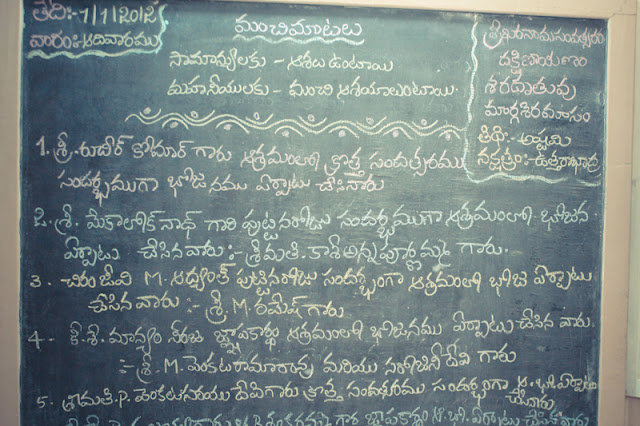 తేది:- 1/1/2012
వారం:- ఆదివారము
మంచిమాటలు
సామాన్యులకు - ఆశలు ఉంటాయి
మహనీయులకు - మంచి ఆశయాలుంటాయి
శ్రీఖరనామసంవత్సరం
దక్షిణాయణం
శరదృతువు
మార్గశిరమాసం
తిథి:- అష్టమి
నక్షత్రం:- ఉత్తరాభాద్ర
1. శ్రీ. సుధీర్ కుమార్ గారు ఆశ్రమంలో క్రొత్త సంవత్సరము
సందర్భముగా భోజనము ఏర్పాటు చేసినారు
2. శ్రీ. మేకా లోక్ నాథ్ గారి పుట్టినరోజు సందర్భముగా ఆశ్రమంలో భోజన
ఏర్పాటు చేసినవారు :- శ్రీమతి. కాశీ అన్నపూర్ణమ్మ గారు.
3. చిరంజీవి M. ఆద్యంత్ పుట్టినరోజు సందర్భంగా ఆశ్రమంలో భోజన ఏర్పాటు
చేసిన వారు :- శ్రీ. M. రమేష్ గారు
4- కీ.శే. మాన్యం నీరజ జ్ఞాపకార్థం ఆశ్రమంలో భోజనము ఏర్పాటు చేసిన వారు
:- శ్రీ. M. వెంకటరామారావు మరియు సరోజినీ దేవి గారు
5. శ్రీమతి. P. వెంకటసుబ్బయ దేవిగారు క్రొత్త సంవత్సరము సందర్భంగా ఆ. భో. ఏర్పాటు
చేసినారు
గారి జ్ఞాపకార్థం ఆ. భో. ఏర్పాటు చేసినవారు